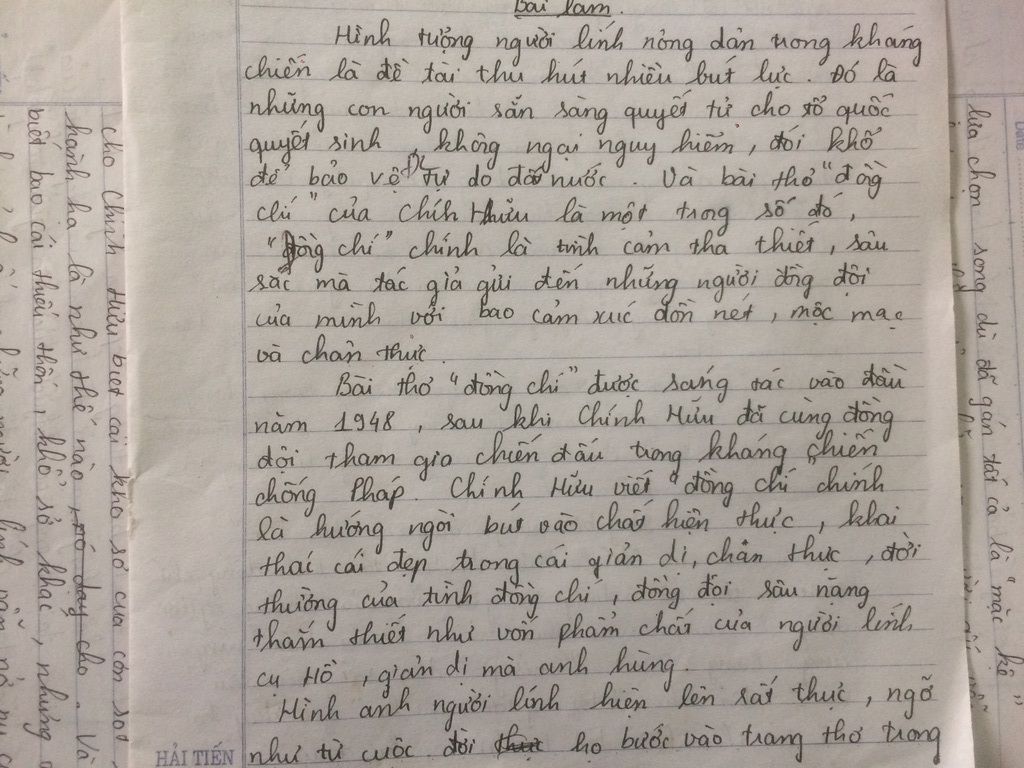 Bài làm.
Hình tượng người lính nông dân trong kháng
chiến là đề tài thu hút nhiều bút lực. Đó là
những con người sẵn sàng quyết tử cho tổ quốc
quyết sinh, không ngại nguy hiểm, đói khổ
để bảo vệ tự do đất nước. Và bài thơ "đồng
chí" của Chính Hữu là một trong số đó,
"Đồng chí" chính là tình cảm tha thiết, sâu
sắc mà tác giả gửi đến những người đồng đội
của mình với bao cảm xúc dồn nét, mộc mạc
và chân thực.
Bài thơ "đồng chí" được sáng tác vào đầu
năm 1948, sau khi Chính Hữu đã cùng đồng
đội tham gia chiến đấu trong kháng chiến
chống Pháp. Chính Hữu viết "đồng chí chính
là hướng ngòi bút vào chất hiện thực, khai
thác cái đẹp trong cái giản dị, chân thực, đời
thường của tình đồng chí, đồng đội sâu nặng
thắm thiết như vốn phẩm chất của người lính
cụ Hồ, giản dị mà anh hùng.
Hình ảnh người lính hiện lên rất thực, ngỡ
như từ cuộc đời họ bước vào trang thơ trong
HẢI TIẾN
cho Chính Hữu biết cái khó sở của cơn sốt
hành hạ là như thế nào, cho. Và
biết bao cái thiếu thốn, khổ sở khác, nhưng
lựa chọn song dù đã gán tất cả là "mặc kệ"